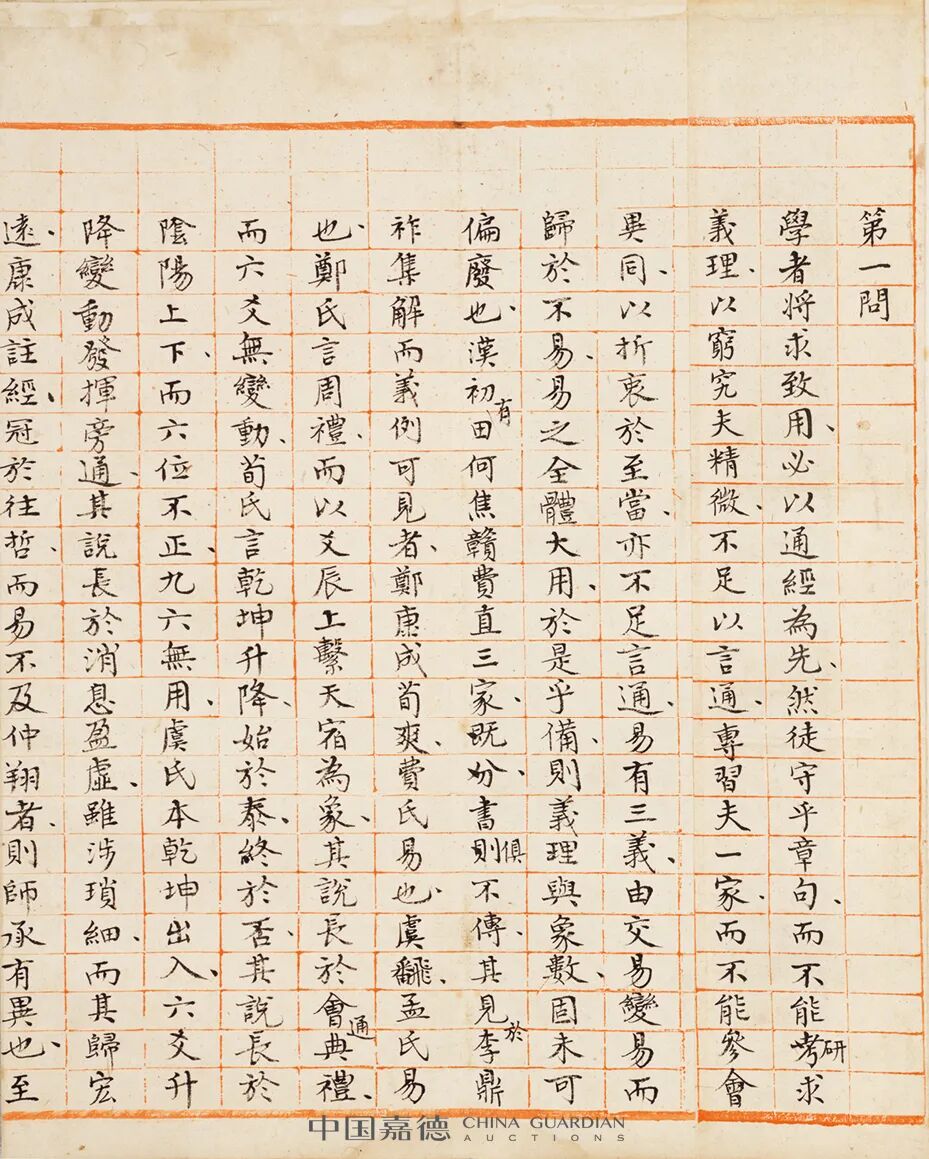 第一問
學者將求致用、必以通經為先、然徒守乎章句、而不能考研求
義理、以窮究夫精微、不足以言通、專習夫一家、而不能參會
異同、以折衷於至當、亦不足言通、易有三義、由交易變易而
歸於不易、易之全體大用、於是乎備、則義理與象數、固未可
偏廢也、漢初有田何焦贛費直三家、既妢書則俱不傳、其見於李鼎
祚集解而義例可見者、鄭康成荀爽、費氏易也、虞翻、孟氏易
也、鄭氏言周禮、而以爻辰上繫天宿為象、其說長於會通典禮、
而六爻無變動、荀氏言乾坤升降、始於泰、終於否、其說長於
陰陽上下、而六位不正、九六無用、虞氏本乾坤出入、六爻升
降變動發揮旁通、其說長於消息盈虛、雖涉瑣細、而其歸宏
遠、康成註經、冠於往哲、而易不及仲翔者、則師承有異也、至
中国嘉德 CHINA GUARDIAN AUCTIONS